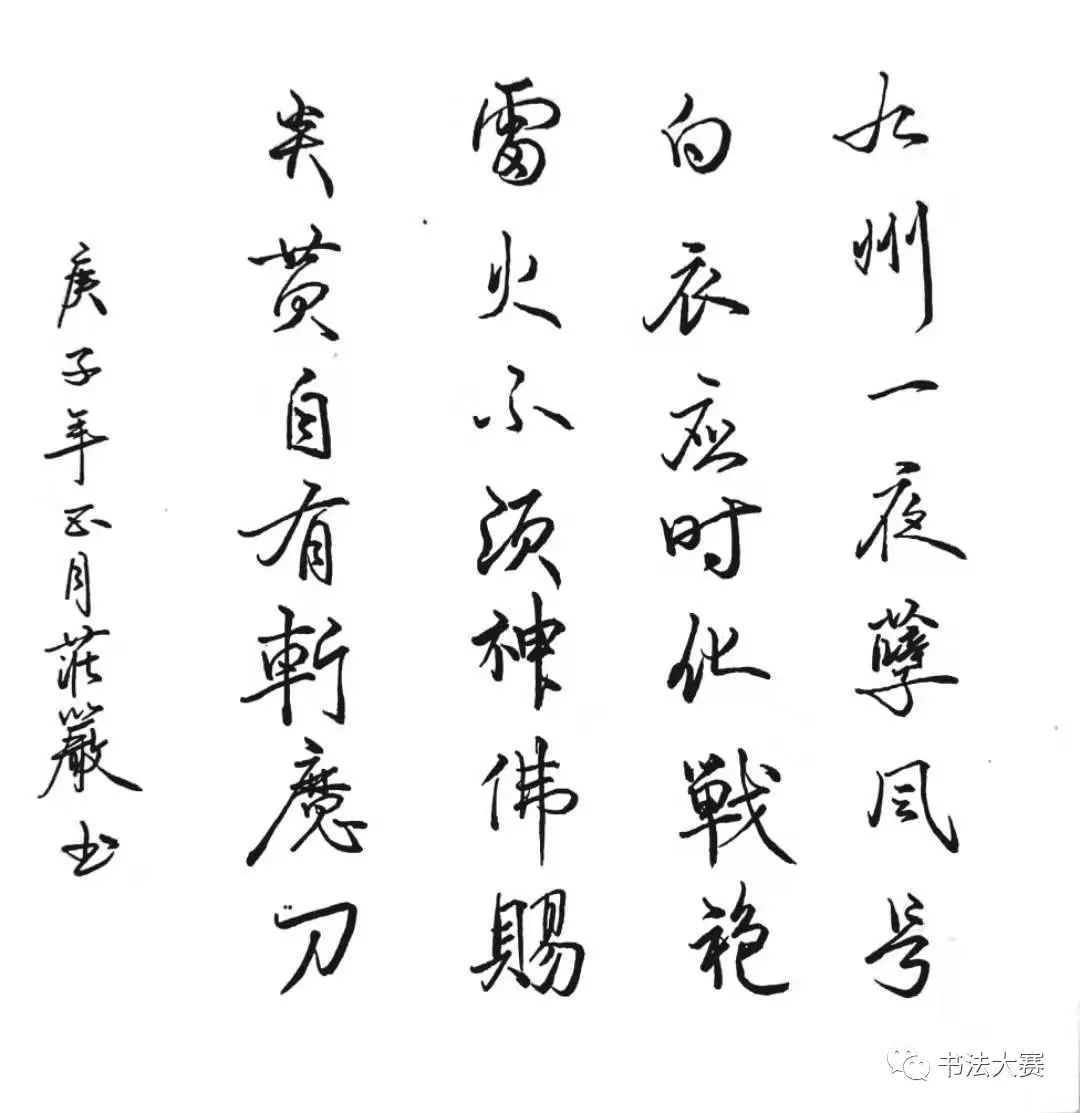 九州一夜孽风号
白衣应时化戰袍
雷火不须神佛賜
炎黄自有斬魔刀
庚子年正月莊嚴书
书法大赛